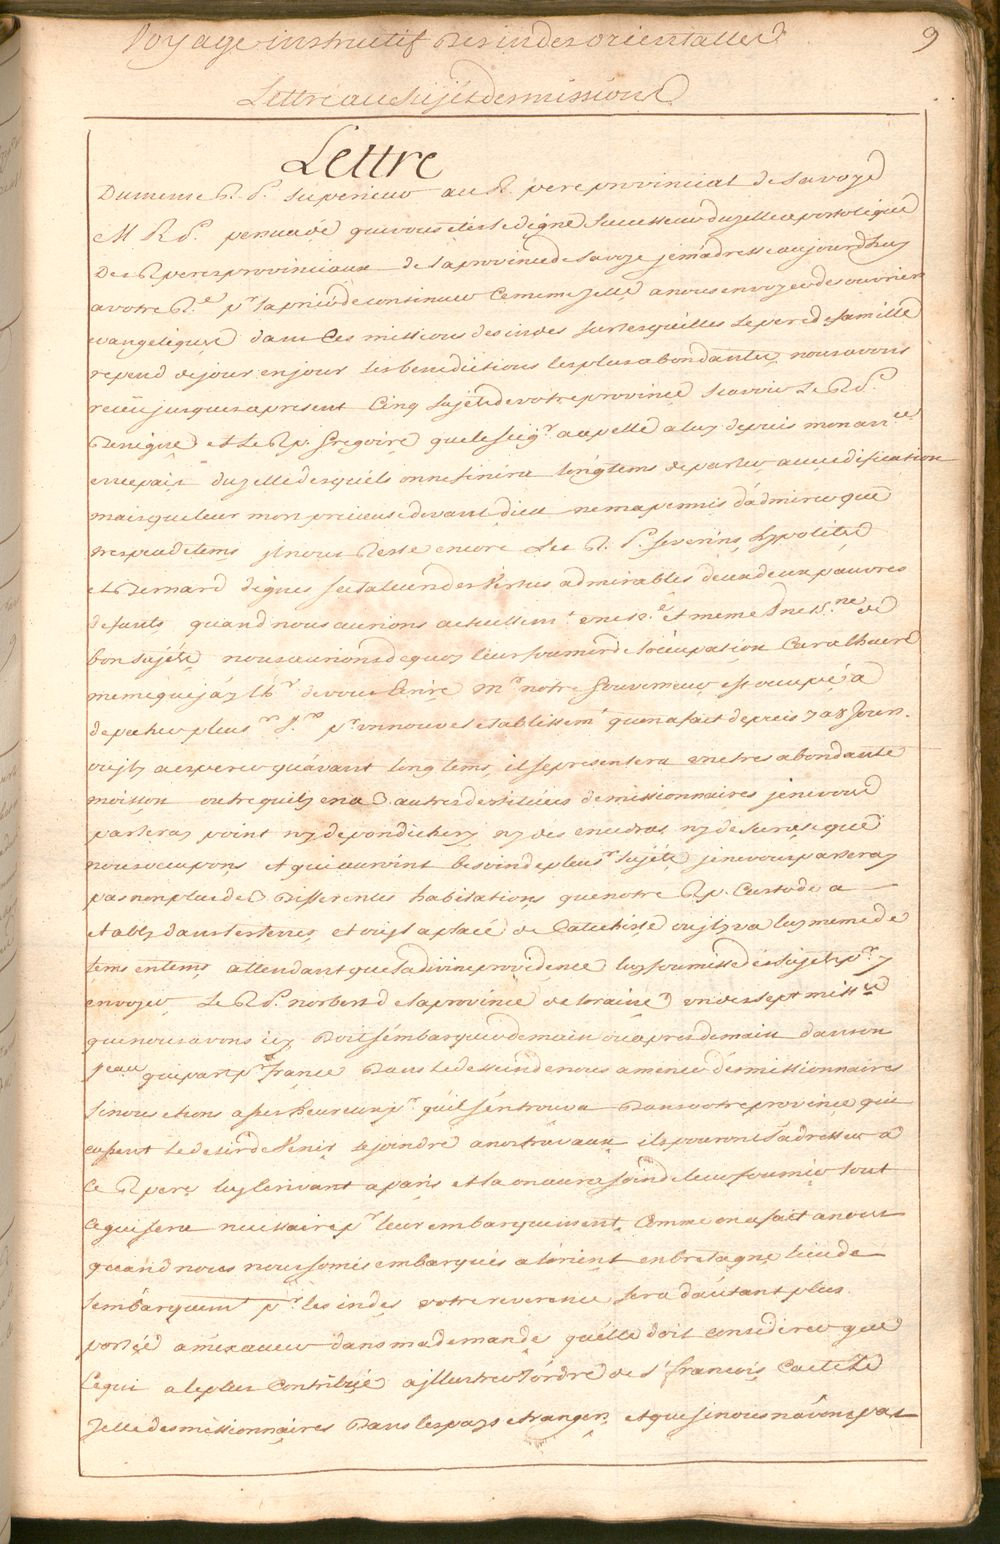 Voyage instructif Des indes orientalles
9
Lettre au sujet des missions
Lettre
Du meme R. P. superieur au R. pere provincial de Savoye
M R P. persuadé que vous etes le digne successeur du zelle apostolique
Des R peres provinciaux de la province de Savoye je m'adresse aujourdhuy
a votre R.e pr la prier de continuer ce meme zelle a nous envoyer des ouvriers
evangeliques dans ces missions des indes sur lesquelles le pere de famille
repend de jour en jour ses benedictions les plus abondantes, nous avons
receu jusques a present Cinq sujets de votre province scavoir Le R P.
Benigne et Le R p. Gregoire que le seigr a apellé a luy depuis mon arr.ce
en ce pais du zelle desquels on ne finira longtems de parler avec edification
mais que leur mort precieuse devant dieu ne m'a permis d'admirer que
tres peu de tems jl nous Reste encore Les R. P. Severins, hypolite
et Bernard dignes par leur des Vertus admirables de ces deux pauvres
defunts quand nous aurions actuellemt et meme de
bon sujets nous aurions de quoy leur fournir de l'occupation Car a l'heure
meme que j'ay l'hr de vous Ecrire Mr notre Gouverneur est occupé a
depecher pleusrs pr un nouvel etablissemt qu'on a fait depuis 7 a 8 Jours.
ou jl y a esperer qu'avant longtems, il se presentera une tres abondante
moisson outre qu'il y en a 3 autres destituées de missionnaires je ne vous
parleray point ny de pondichery ny des ny de surate que
nous occupons et qui auroint besoin de pleusr sujets je ne vous parleray
pas non plus de 3 Differentes habitations que notre R p. Custode a
etably dans les terres, et ou jl a placé de Catechiste ou jl y va luy meme de
tems en tems attendant que la divine providence luy fournisse des sujets pr y
envoyer Le R P. norbert de la province de loraine, un des sept misse
que nous avons icy Doit s'embarquer demain ou apres demain dans un
Veau qui part pr france Dans le dessein de nous amener des missionnaires
si nous etions assez heureux pr qu'il s'en trouva Dans votre province qui
eussent le desir de Venir se joindre a nos travaux ils pouront s'adresser a
Ce R pere, luy Ecrivant a paris et la on aura soin de leur fournir tout
ce que sera necessaire pr leur embarquement Comme on a fait a nous
quand nous nous somes embarqués a l'orient en bretagne lieu de
l'embarquemt pr les indes votre reverence sera d'autant plus
portée a m'exaucer dans ma demande, qu'elle doit considerer que
Ce qui a le plus contribué a jllustrer l'ordre de St francois, C'a eté le
Zelle des missionnaires Dans les pays etrangers et que si nous n'avons pas